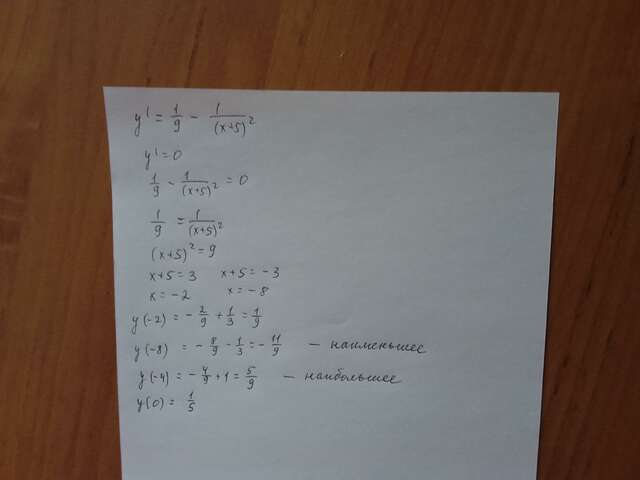 y' = 1/9 - 1/(x+5)²
y' = 0
1/9 - 1/(x+5)² = 0
1/9 = 1/(x+5)²
(x+5)² = 9
x+5 = 3 x+5 = -3
x = -2 x = -8
y(-2) = - 2/9 + 1/3 = 1/9
y(-8) = - 8/9 - 1/3 = - 11/9 — наименьшее
y(-4) = - 4/9 + 1 = 5/9 — наибольшее
y(0) = 1/5